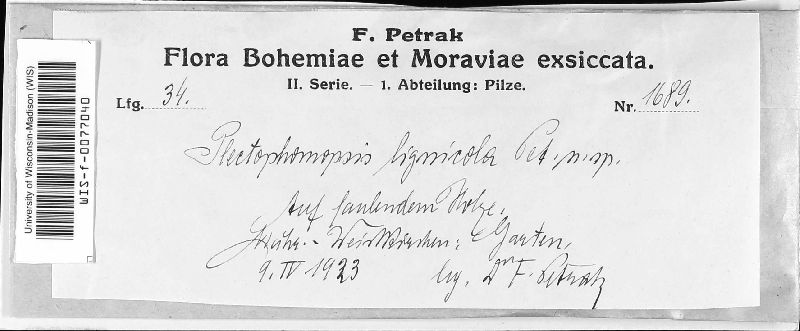 F. Petrak
Flora Bohemiae et Moraviae exsiccata.
II. Serie. — 1. Abteilung: Pilze.
Lfg. 34.
Nr. 1689.
Plectophomopsis lignicola Pet. n. sp.
Auf faulendem Holze,
Mähr.-Weisskirchen: Garten,
9. IV 1923
leg. Dr F. Petrak
University of Wisconsin-Madison (WIS)
WIS-f-0077040